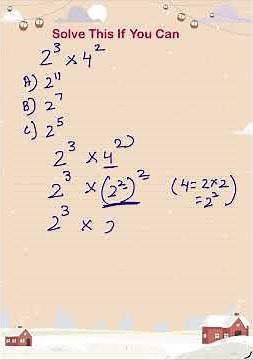 Solve This If You Can
2³ × 4²
A) 2¹¹
B) 2⁷
C) 2⁵
2³ × 4²
2³ × (2²)² (4 = 2×2
= 2²)
2³ ×